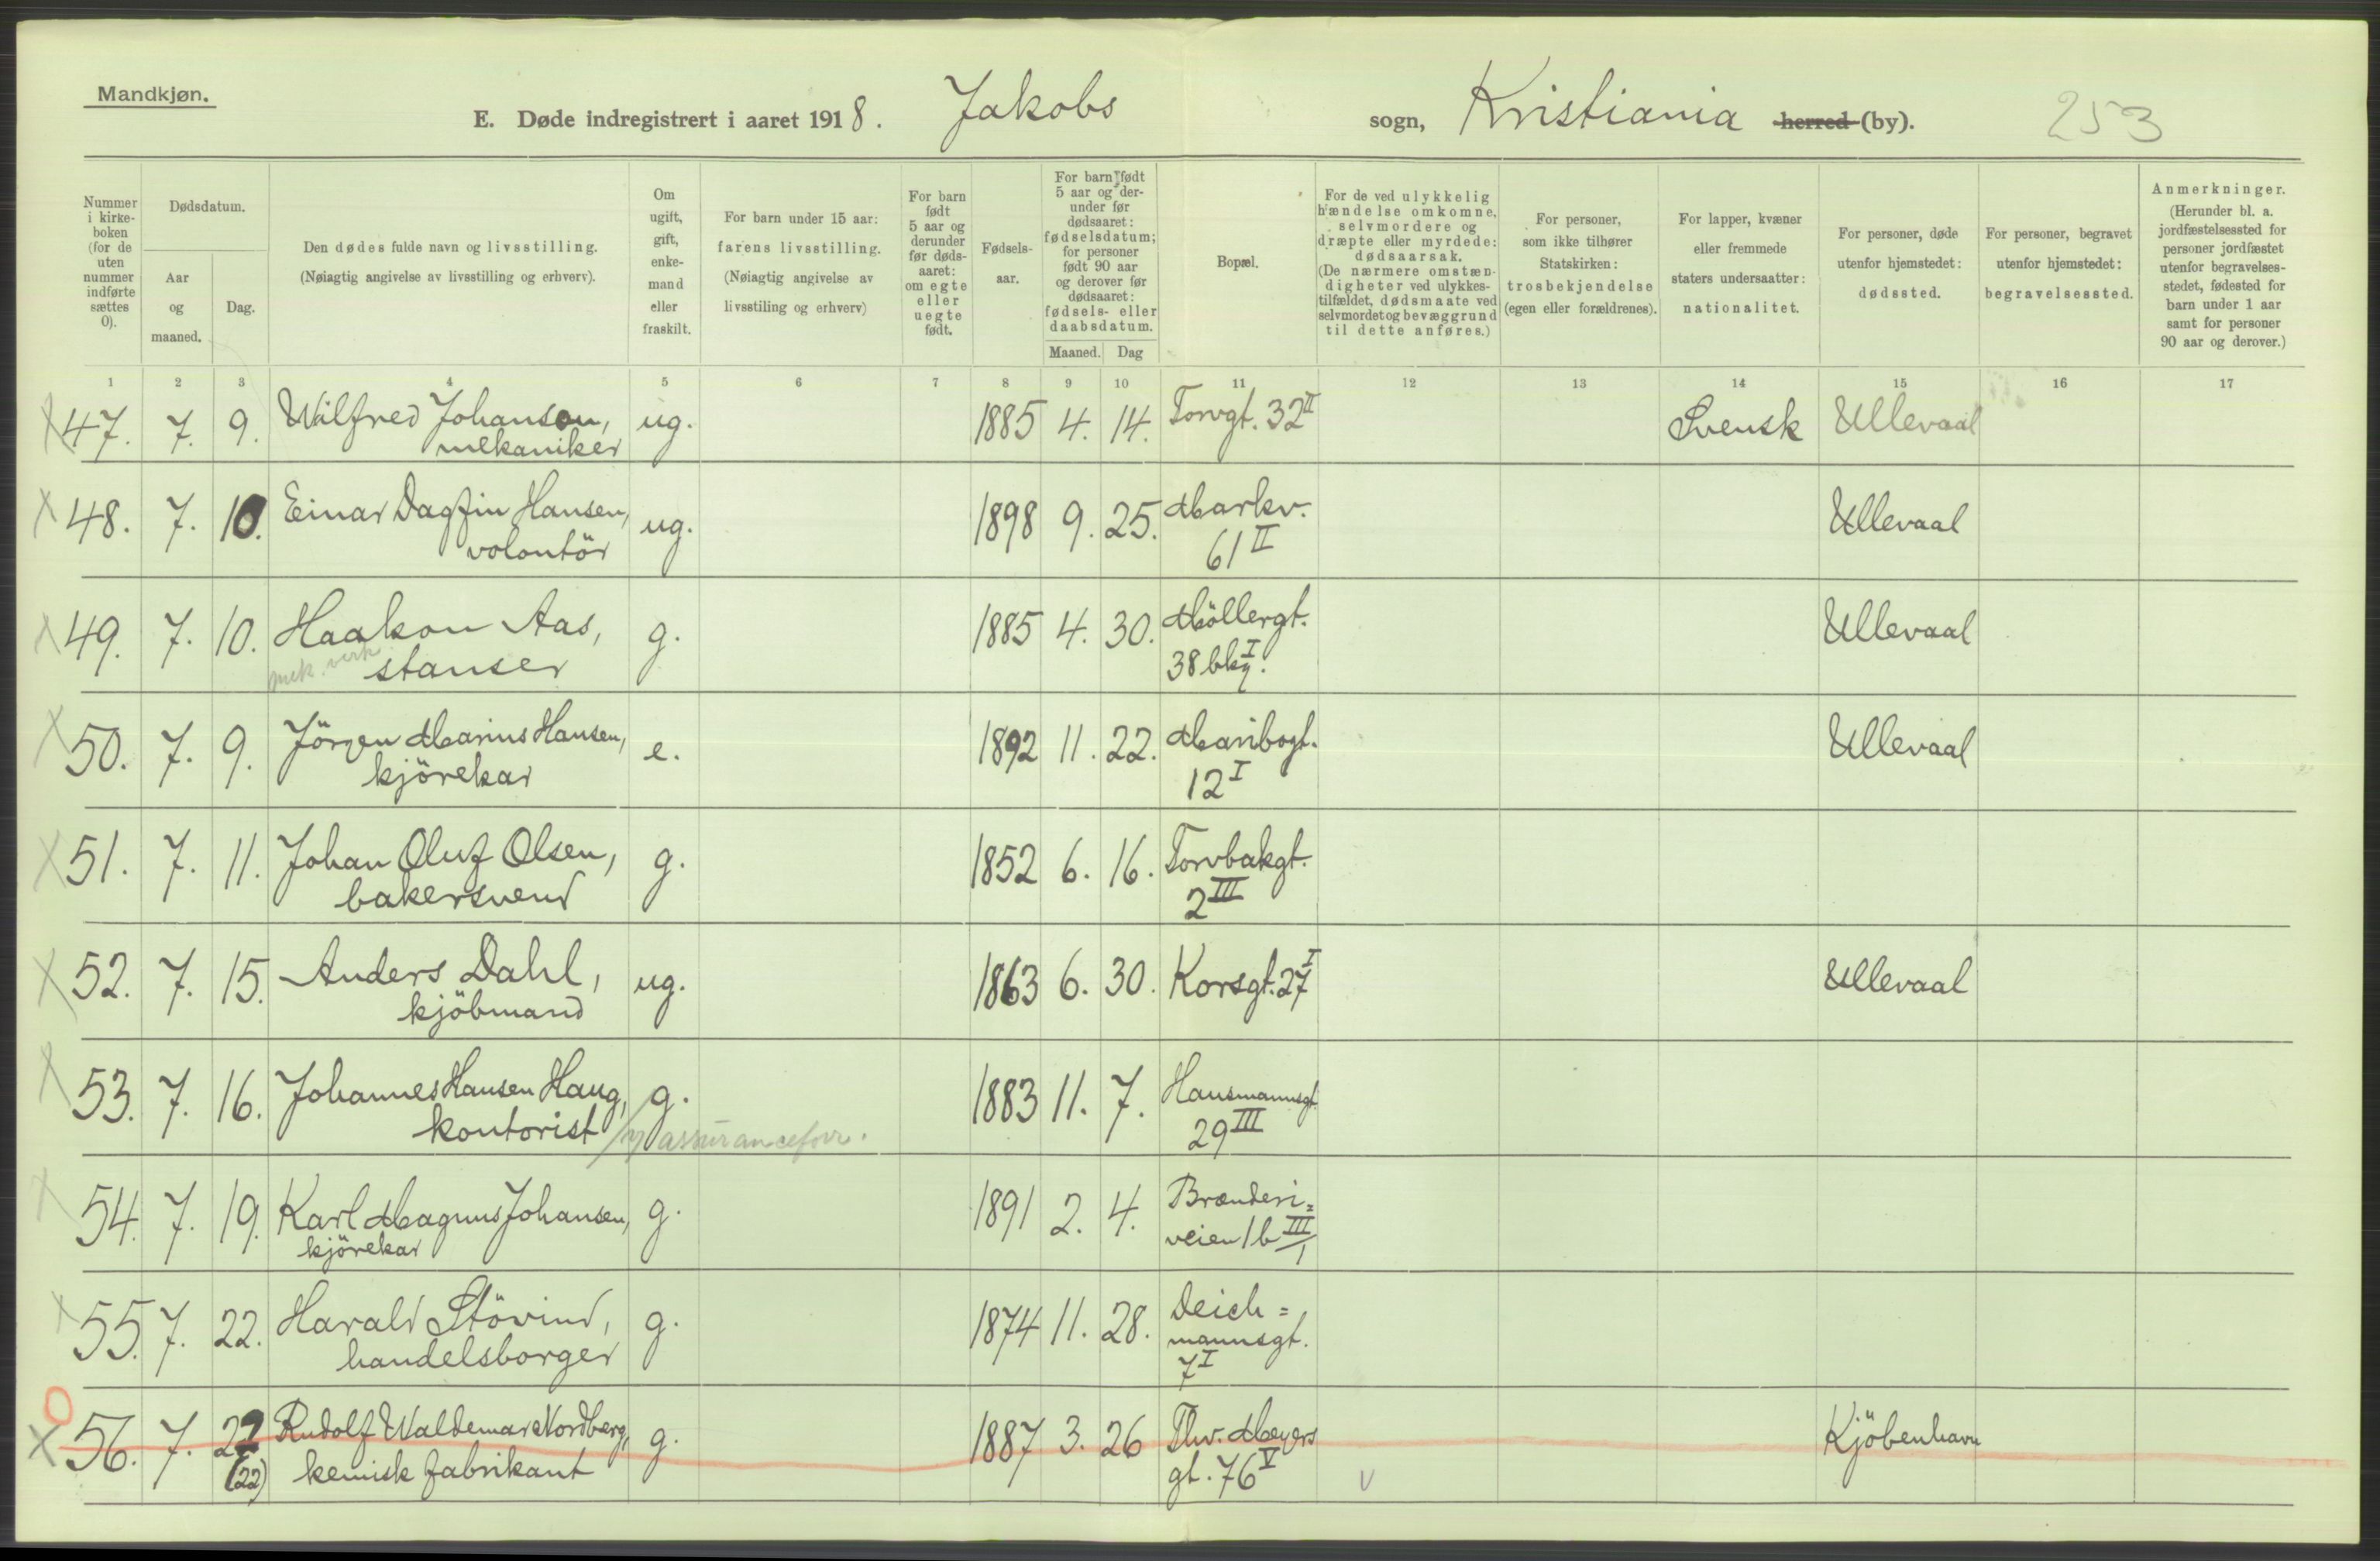 Mandkjøn.
E. Døde indregistrert i aaret 1918. Jakobs sogn, Kristiania herred (by). 253
Nummer i kirke- boken (for de uten nummer indførte sættes 0).
Dødsdatum.
Aar og maaned.
Dag.
Den dødes fulde navn og livsstilling.
(Nøiagtig angivelse av livsstilling og erhverv).
Om ugift, gift, enke- mand eller fraskilt.
For barn under 15 aar: farens livsstilling.
(Nøiagtig angivelse av livsstiling og erhverv)
For barn født 5 aar og derunder før døds- aaret: om egte eller uegte født.
Fødsels- aar.
For barn født 5 aar og der- under før dødsaaret: fødselsdatum; for personer født 90 aar og derover før dødsaaret: fødsels- eller daabsdatum.
Maaned. Dag
Bopæl.
For de ved ulykkelig hændelse omkomne, selvmordere og dræpte eller myrdede: dødsaarsak.
(De nærmere omstæn- digheter ved ulykkes- tilfældet, dødsmaate ved selvmordet og bevæggrund til dette anføres.)
For personer, som ikke tilhører Statskirken: trosbekjendelse (egen eller forældrenes).
For lapper, kvæner eller fremmede staters undersaatter: nationalitet.
For personer, døde utenfor hjemstedet: dødssted.
For personer, begravet utenfor hjemstedet: begravelsessted.
Anmerkninger.
(Herunder bl. a. jordfæstelsessted for personer jordfæstet utenfor begravelses- stedet, fødested for barn under 1 aar samt for personer 90 aar og derover.)
1 2 3 4 5 6 7 8 9 10 11 12 13 14 15 16 17
X 47. 7. 9. Wilfred Johanson, ug. 1885 4. 14. Torvgt. 32 II Svensk Ullevaal
mekaniker
X 48. 7. 10. Einar Dagfin Hansen, ug. 1898 9. 25. Markv. Ullevaal
volontör 61 II
X 49. 7. 10. Haakon Aas, g. 1885 4. 30. Möllergt. Ullevaal
mek. verk. stanser 38 bkg. I
X 50. 7. 9. Jörgen Marius Hansen, e. 1892 11. 22. Maribogt. Ullevaal
kjörekar 12 I
X 51. 7. 11. Johan Oluf Olsen, g. 1852 6. 16. Torvbakgt.
bakersvend 2 III
X 52. 7. 15. Anders Dahl, ug. 1863 6. 30. Korsgt. 27 I Ullevaal
kjöbmand
X 53. 7. 16. Johannes Hansen Haug, g. 1883 11. 7. Hausmannsgt.
kontorist / i assuranceforr. 29 III
X 54. 7. 19. Karl Magnus Johansen, g. 1891 2. 4. Brænderi=
kjörekar veien 1 b III/1
X 55. 7. 22. Harald Stövind, g. 1874 11. 28. Deich=
handelsborger mannsgt.
7 I
O
X 56. 7. 22 Rudolf Waldemar Nordberg, g. 1887 3. 26 Thv. Meyers Kjöbenhavn
(22) kemisk fabrikant gt. 76 V V